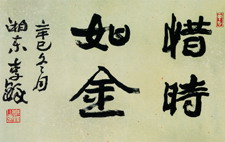 惜時
如金
辛巳冬月
湘东李毅